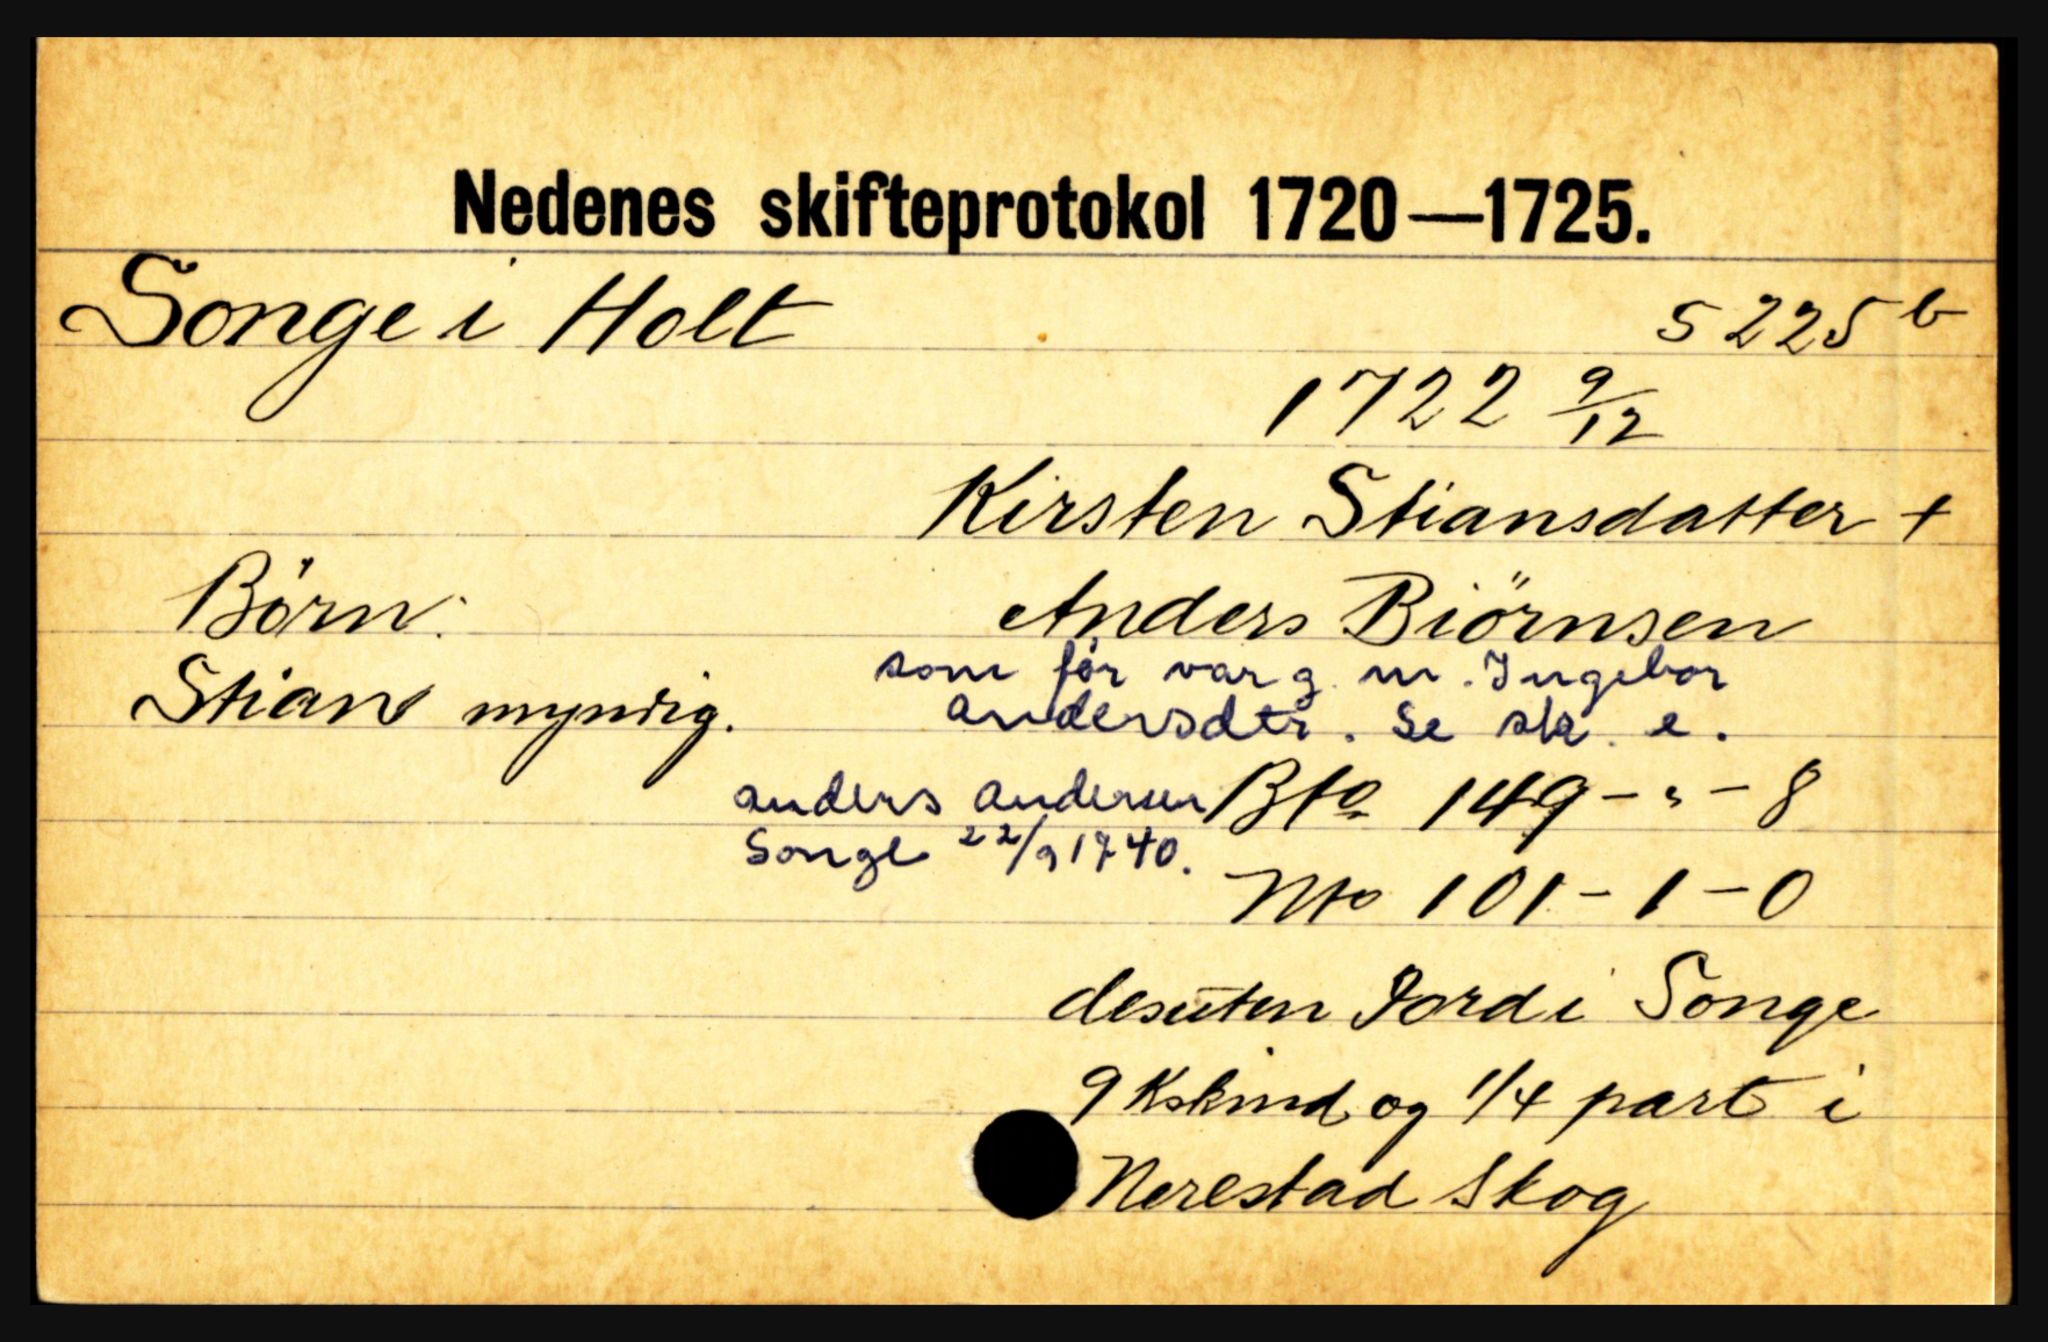 Nedenes skifteprotokol 1720—1725.
Songe i Holt
S 225 b
1722 9/12
Kirsten Stiansdatter +
Börn:
Anders Biörnsen
som før var g. m. Ingebor
Stians myndig.
andersdtr. Se sk. e.
anders andersen
Bto 149 - " - 8
Songe 22/9 1740.
Nto 101 - 1 - 0
desuten Jord i Songe
9 Kskind og 1/4 part i
Nerestad Skog